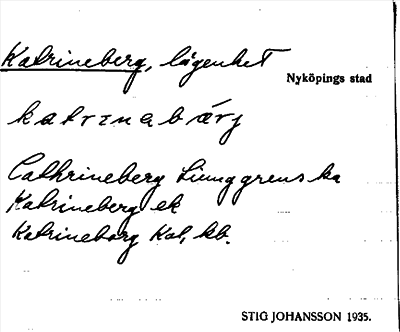 Katrineberg, lägenhet
Nyköpings stad
katrinabärj
Cathrineberg Ljunggrenska
Katrineberg ek
Katrineborg Kat, kb.
STIG JOHANSSON 1935.